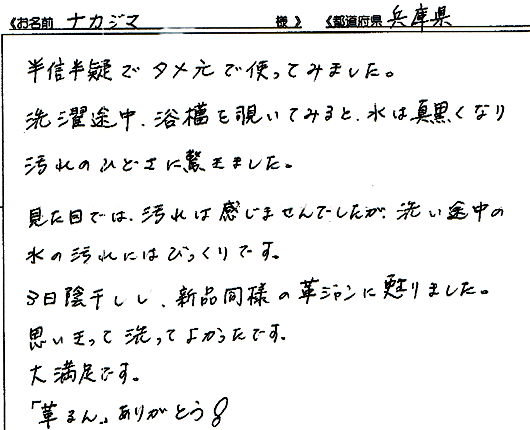 《お名前 ナカジマ 様》 《都道府県 兵庫県
半信半疑でダメ元で使ってみました。
洗濯途中、浴槽を覗いてみると、水は真黒くなり
汚れのひどさに驚きました。
見た目では、汚れは感じませんでしたが、洗い途中の
水の汚れにはびっくりです。
3日陰干しし、新品同様の革ジャンに甦りました。
思いきって洗ってよかったです。
大満足です。
「革るん」ありがとう!